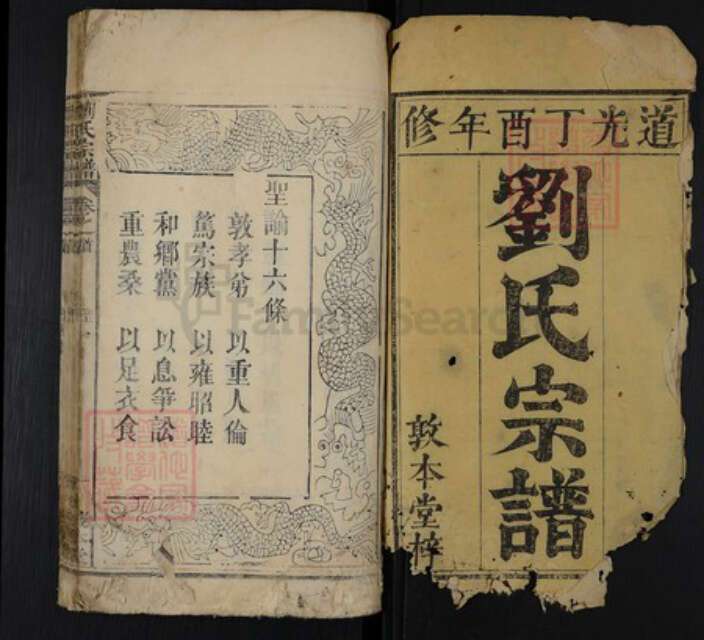 道光丁酉年修
劉氏宗譜
敦本堂梓
聖諭十六條
敦孝弟 以重人倫
篤宗族 以雍昭睦
和鄉黨 以息爭訟
重農桑 以足衣食
氏宗譜
FamilySearch